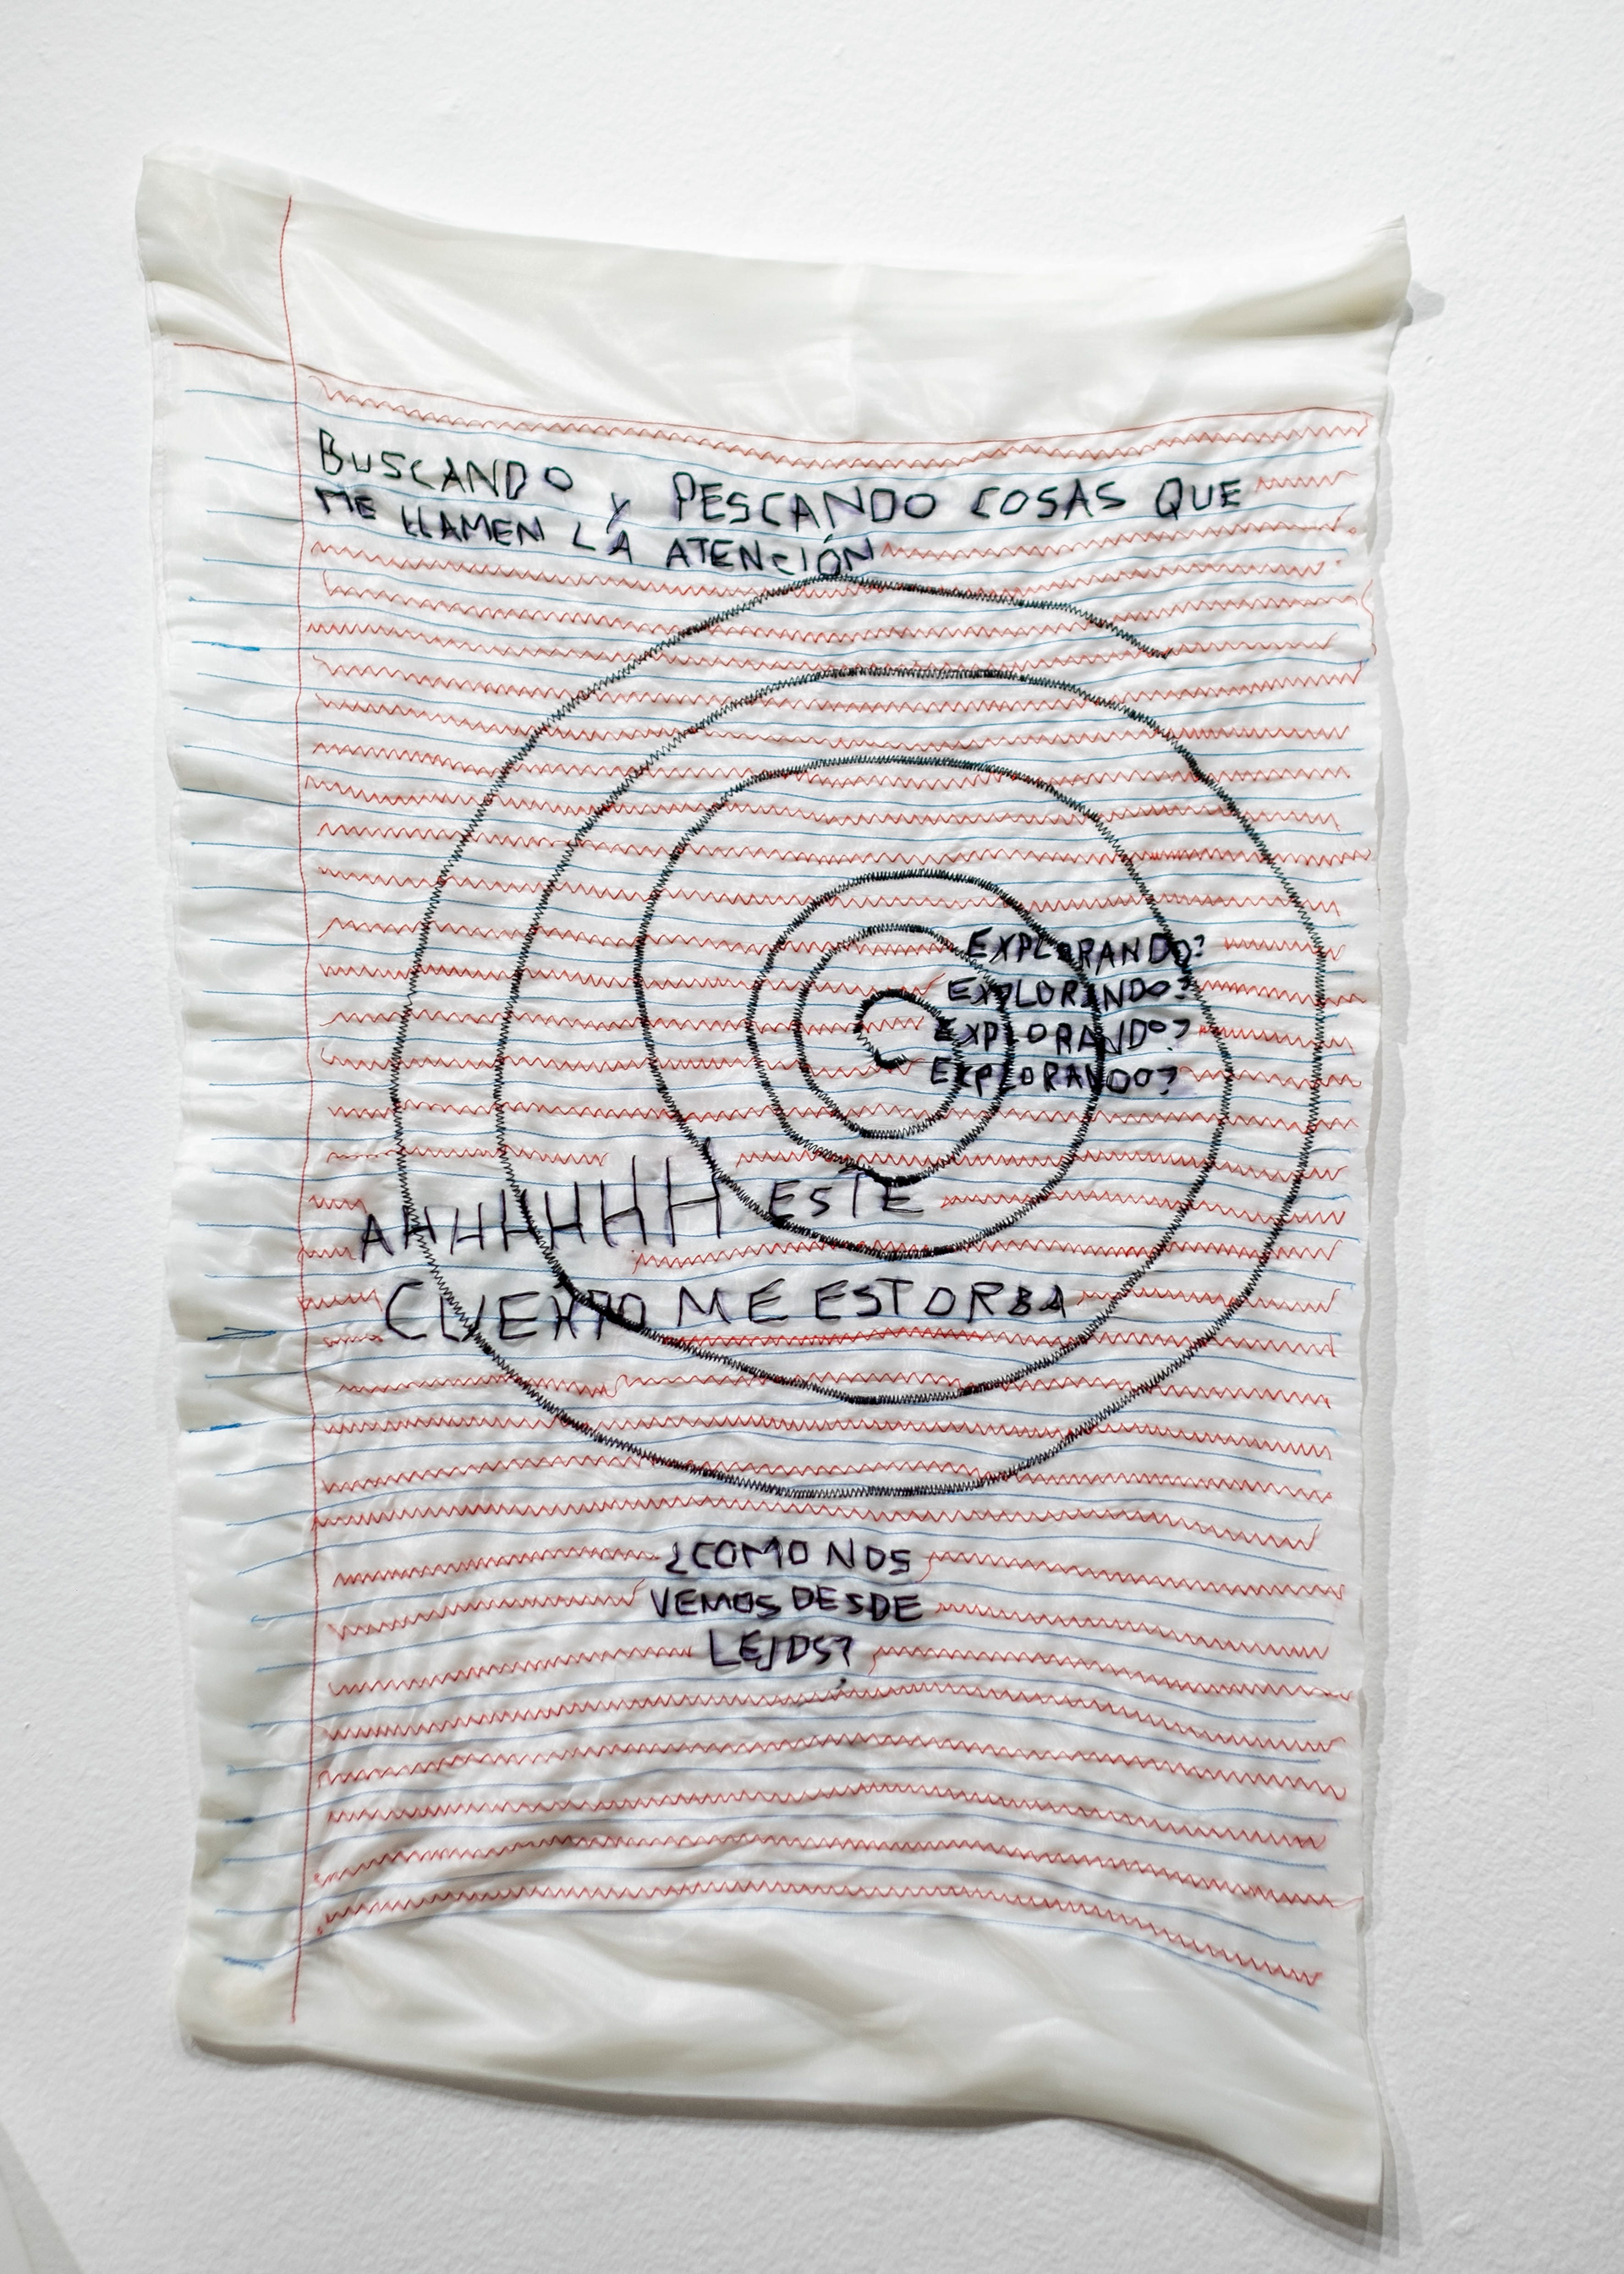 BUSCANDO Y PESCANDO COSAS QUE
ME LLAMEN LA ATENCIÓN
EXPLORANDO?
EXPLORANDO?
EXPLORANDO?
EXPLORANDO?
AHHHHHH ESTE
CUERPO ME ESTORBA
¿COMO NOS
VEMOS DESDE
LEJOS?